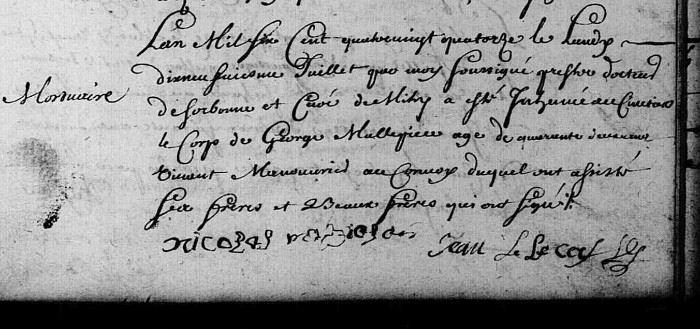 Lan Mil six Cent quatrevingt quatorze le Lundy
dixneufuiesme Juillet par moy soussigné prestre docteur
Mortuaire
de sorbonne et Curé de Mitry a esté Inhumé au Cimetiere
le Corps de George age de quarante
vivant Manouvrier au Convoy duquel ont assisté
ses freres et Beaux freres qui ont signé
nicolas Jean Le